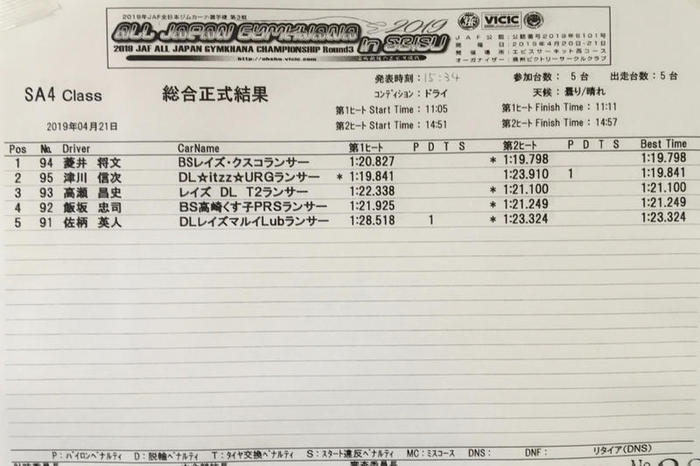 2019年JAF全日本ジムカーナ選手権 第3戦
ALL JAPAN GYMKHANA in SEISU 2019
2019 JAF ALL JAPAN GYMKHANA CHAMPIONSHIP Round3
VICIC
JAF公認:公認番号2019年6101号
開催日:2019年4月20日-21日
開催場所:エビスサーキット西コース
オーガナイザー:奥州ビクトリーサークルクラブ
発表時刻:15:34 参加台数: 5 台 出走台数: 5 台
SA4 Class 総合正式結果 コンディション:ドライ 天候:曇り/晴れ
第1ヒートStart Time: 11:05 第1ヒートFinish Time: 11:11
2019年04月21日 第2ヒートStart Time: 14:51 第2ヒートFinish Time: 14:57
Pos No. Driver CarName 第1ヒート P D T S 第2ヒート P D T S Best Time
1 94 菱井 将文 BSレイズ・クスコランサー 1:20.827 * 1:19.798 1:19.798
2 95 津川 信次 DL★itzz★URGランサー * 1:19.841 1:23.910 1 1:19.841
3 93 高瀬 昌史 レイズ DL T2ランサー 1:22.338 * 1:21.100 1:21.100
4 92 飯坂 忠司 BS高崎くす子PRSランサー 1:21.925 * 1:21.249 1:21.249
5 91 佐柄 英人 DLレイズマルイLubランサー 1:28.518 1 * 1:23.324 1:23.324
P:パイロンペナルティ D:脱輪ペナルティ T:タイヤ交換ペナルティ S:スタート違反ペナルティ MC:ミスコース DNS: DNF: リタイア(DNS)